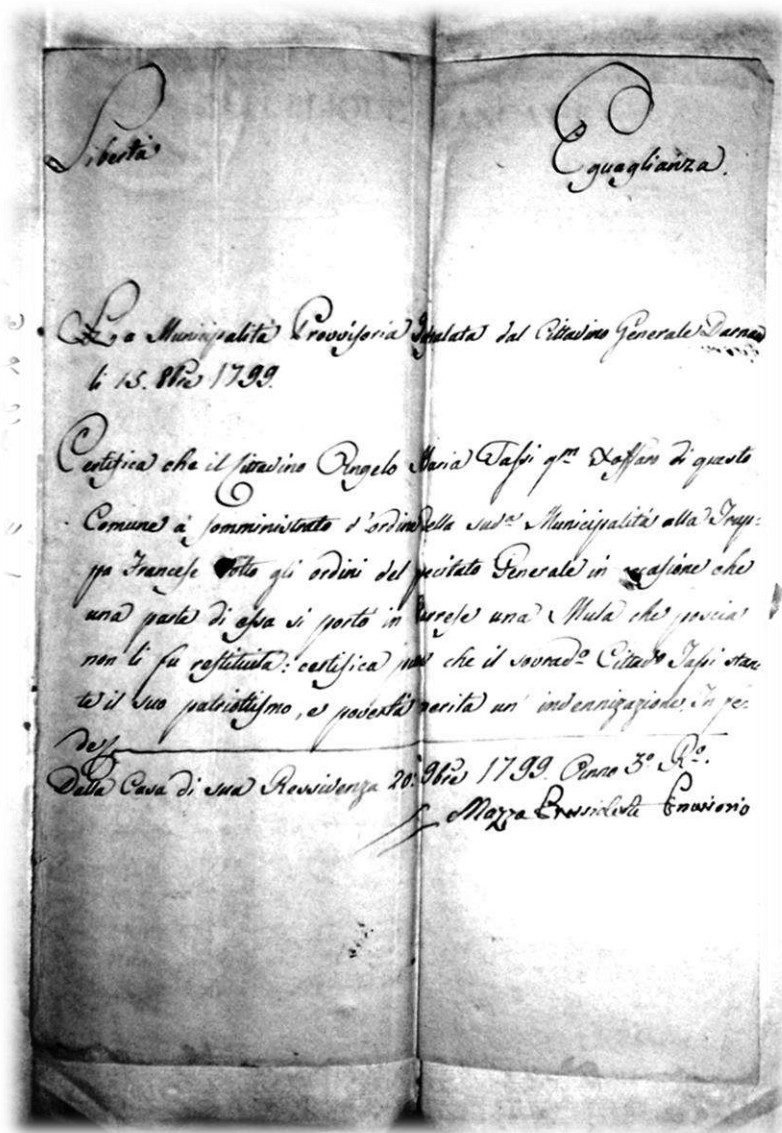 Libertà Eguaglianza.
La Municipalità Provvisoria Instalata dal Cittadino Generale Darnaud
li 15. 8bre 1799.
Certifica che il Cittadino Angelo Maria Tassi qm di questo
Comune à somministrato d'ordine della sudᵃ Municipalità alla Trup:
pa Francese sotto gli ordini del precitato Generale in occasione che
una parte di essa si portò in Varese una Mula che poscia
non li fu restituita: certifica pure che il sovradᵒ Cittadᵒ Tassi stan:
te il suo patriotismo, e povertà merita un' indennizazione. In fe:
de
Dalla Casa di sua Ressidenza 20. 9bre 1799. Anno 3º Rº.
Mazza Pressidente